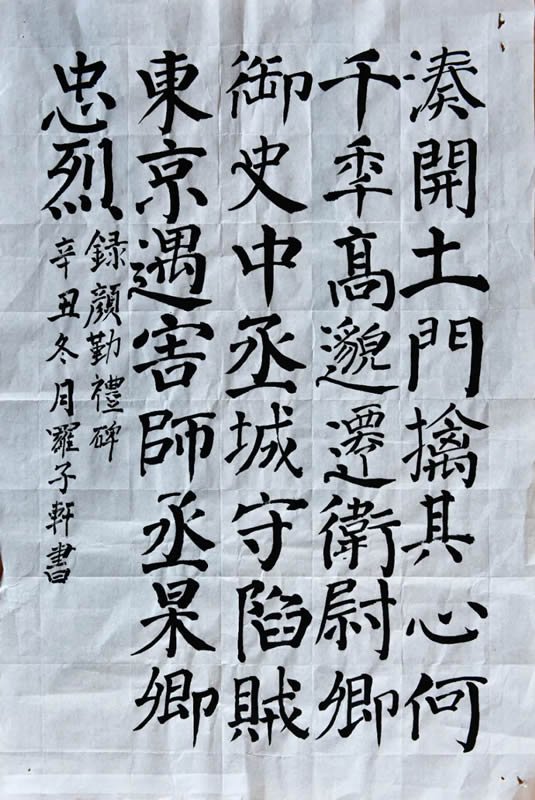 湊開土門擒其心何
千秊髙邈遷衛尉卿
御史中丞城守陷賊
東京遇害師丞杲卿
忠烈
録顏勤禮碑
辛丑冬月羅子軒書